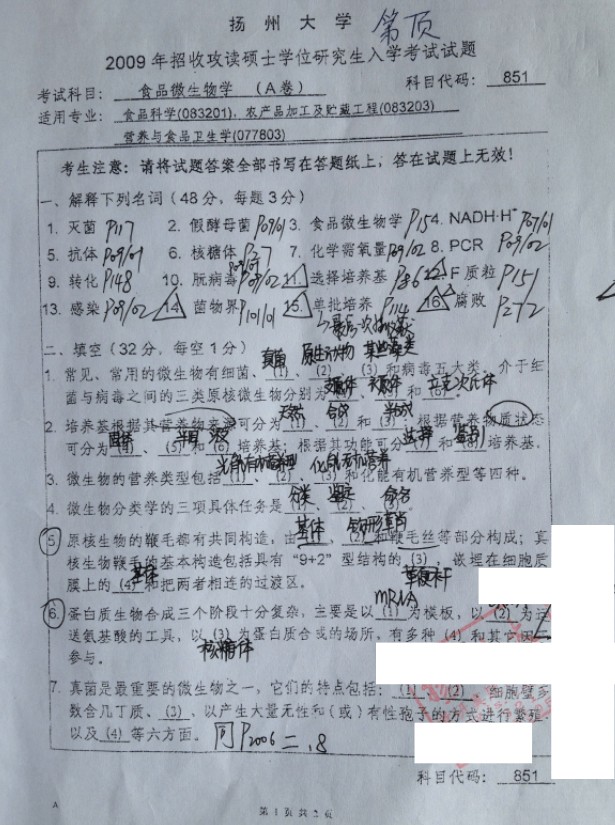 扬州大学
2009年招收攻读硕士学位研究生入学考试试题
考试科目： 食品微生物学 （A卷） 科目代码： 851
适用专业： 食品科学(083201)，农产品加工及贮藏工程(083203)
营养与食品卫生学(077803)
考生注意：请将试题答案全部书写在答题纸上，答在试题上无效！
一、解释下列名词（48分，每题3分）
1. 灭菌 P117 2. 假酵母菌 3. 食品微生物学 P15 4. NADH·H⁺
5. 抗体 P09/01 6. 核糖体 7. 化学需氧量 P09/02 8. PCR P09/02
9. 转化 P148 10. 朊病毒 P09/02 11. 选择培养基 P86 12. F质粒 P151
13. 感染 P09/02 14. 菌物界 P101 15. 单批培养 P114 16. 腐败 P272
二、填空（32分，每空1分）
真菌 原生动物 某些藻类
1. 常见、常用的微生物有细菌、(1)、(2)、(3)和病毒五大类，介于细
支原体 衣原体 立克次氏体
菌与病毒之间的三类原核微生物分别为(4)、(5)和(6)。
天然 合成 半合成
2. 培养基根据其营养物来源可分为(1)、(2)和(3)；根据营养物质状态
固体 半固 液 选择 鉴别
可分为(4)、(5)和(6)培养基；根据其功能可分为(7)和(8)培养基。
光能有机营养型 化能无机营养
3. 微生物的营养类型包括(1)、(2)、(3)和化能有机营养型等四种。
分类 鉴定 命名
4. 微生物分类学的三项具体任务是(1)、(2)、(3)。
基体 钩形鞘
5. 原核生物的鞭毛都有共同构造，由(1)、(2)和鞭毛丝等部分构成；真
核生物鞭毛的基本构造包括具有“9+2”型结构的(3)，嵌埋在细胞质
基体 鞭杆
膜上的(4)和把两者相连的过渡区。
mRNA
6. 蛋白质生物合成三个阶段十分复杂，主要是以(1)为模板，以(2)为运
送氨基酸的工具，以(3)为蛋白质合成的场所，有多种(4)和其它因
核糖体
参与。
7. 真菌是最重要的微生物之一，它们的特点包括：(1)、(2)、细胞壁多
数含几丁质、(3)、以产生大量无性和（或）有性孢子的方式进行繁殖
以及(4)等六方面。 同P2006 二、8
科目代码： 851
A
第 1 页 共 2 页